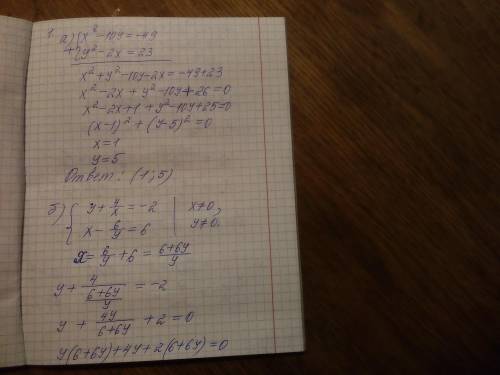 1. а) { x² - 10y = -49
+ { y² - 2x = 23
x² + y² - 10y - 2x = -49 + 23
x² - 2x + y² - 10y + 26 = 0
x² - 2x + 1 + y² - 10y + 25 = 0
(x - 1)² + (y - 5)² = 0
x = 1
y = 5
Ответ: (1; 5)
б) { y + y/x = -2 | x ≠ 0,
{ x - 6/y = 6 | y ≠ 0.
x = 6/y + 6 = (6 + 6y)/y
y + 4/((6 + 6y)/y) = -2
y + 4y/(6 + 6y) + 2 = 0
y(6 + 6y) + 4y + 2(6 + 6y) = 0